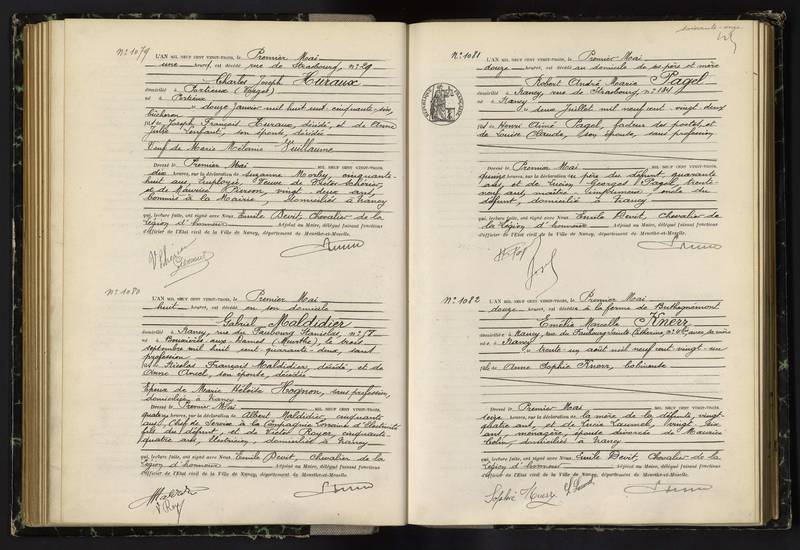 N° 1079
L'AN MIL NEUF CENT VINGT-TROIS, le Premier Mai
une heure, est décédé rue de Strasbourg, n° 29
Charles Joseph Huraux
domicilié à Portieux (Vosges)
né à Portieux
le douze Janvier mil huit cent cinquante-six,
bûcheron
fils de Joseph François Huraux, décédé, et de Anne
Julie Lenfant, son épouse, décédée
Veuf de Marie Mélanie Vuillaume
Dressé le Premier Mai MIL NEUF CENT VINGT-TROIS,
dix heures, sur la déclaration de Suzanne Morley, cinquante-
huit ans, employée, Veuve de Victor
et de Maurice Pierson, vingt-deux ans,
Commis à la Mairie, domiciliés à Nancy
qui, lecture faite, ont signé avec Nous Emile Devit, Chevalier de la
Légion d'honneur Adjoint au Maire, délégué faisant fonctions
d'officier de l'Etat civil de la Ville de Nancy, département de Meurthe-et-Moselle.
N° 1080
L'AN MIL NEUF CENT VINGT-TROIS, le Premier Mai
huit heures, est décédé en son domicile
Gabriel Maldidier
domicilié à Nancy, rue du Faubourg Stanislas, n° 17
né à (Meurthe), le trois
septembre mil huit cent quarante-deux, sans
profession
fils de Nicolas François Maldidier, décédé, et de
Anne son épouse, décédée
Epoux de Marie Héloïse Hognon, sans profession,
domiciliée à Nancy
Dressé le Premier Mai MIL NEUF CENT VINGT-TROIS,
quatorze heures, sur la déclaration de Albert Maldidier, cinquante
ans, Chef de Service à la Compagnie Lorraine d'Electricité
fils du défunt, et de Victor Royer, cinquante-
quatre ans, électricien, domiciliés à Nancy
qui, lecture faite, ont signé avec Nous Emile Devit, Chevalier de la
Légion d'honneur Adjoint au Maire, délégué faisant fonctions
d'officier de l'Etat civil de la Ville de Nancy, département de Meurthe-et-Moselle.
soixante-onze
N° 1081
L'AN MIL NEUF CENT VINGT-TROIS, le Premier Mai
douze heures, est décédé au domicile de ses père et mère
Robert André Marie Pagel
domicilié à Nancy, rue de Strasbourg, n° 184
né à Nancy
le deux Juillet mil neuf cent vingt-deux
fils de Henri Aimé Pagel, facteur des postes, et
de Louise Claude, son épouse, sans profession
Dressé le Premier Mai MIL NEUF CENT VINGT-TROIS,
quinze heures, sur la déclaration du père du défunt, quarante
ans, et de Lucien Georges Pagel, trente-
neuf ans, oncle du
défunt, domicilié à Nancy
qui, lecture faite, ont signé avec Nous Emile Devit, Chevalier de
la Légion d'honneur Adjoint au Maire, délégué faisant fonctions
d'officier de l'Etat civil de la Ville de Nancy, département de Meurthe-et-Moselle.
N° 1082
L'AN MIL NEUF CENT VINGT-TROIS, le Premier Mai
douze heures, est décédée à la ferme de Buthegnémont
Emélie Marcelle Knerr
domiciliée à Nancy, rue du Faubourg Sainte Catherine, n° avec sa mère
née à Nancy
le trente-un août mil neuf cent vingt-un
fille de Anne Sophie Knerr, bobineuse
Dressé le Premier Mai MIL NEUF CENT VINGT-TROIS,
seize heures, sur la déclaration de la mère de la défunte, vingt-
quatre ans, et de Lucie vingt-six
ans, ménagère, épouse divorcée de Maurice
domiciliés à Nancy
qui, lecture faite, ont signé avec Nous Emile Devit, Chevalier de la
Légion d'honneur Adjoint au Maire, délégué faisant fonctions
d'officier de l'Etat civil de la Ville de Nancy, département de Meurthe-et-Moselle.
Sophie Knerr